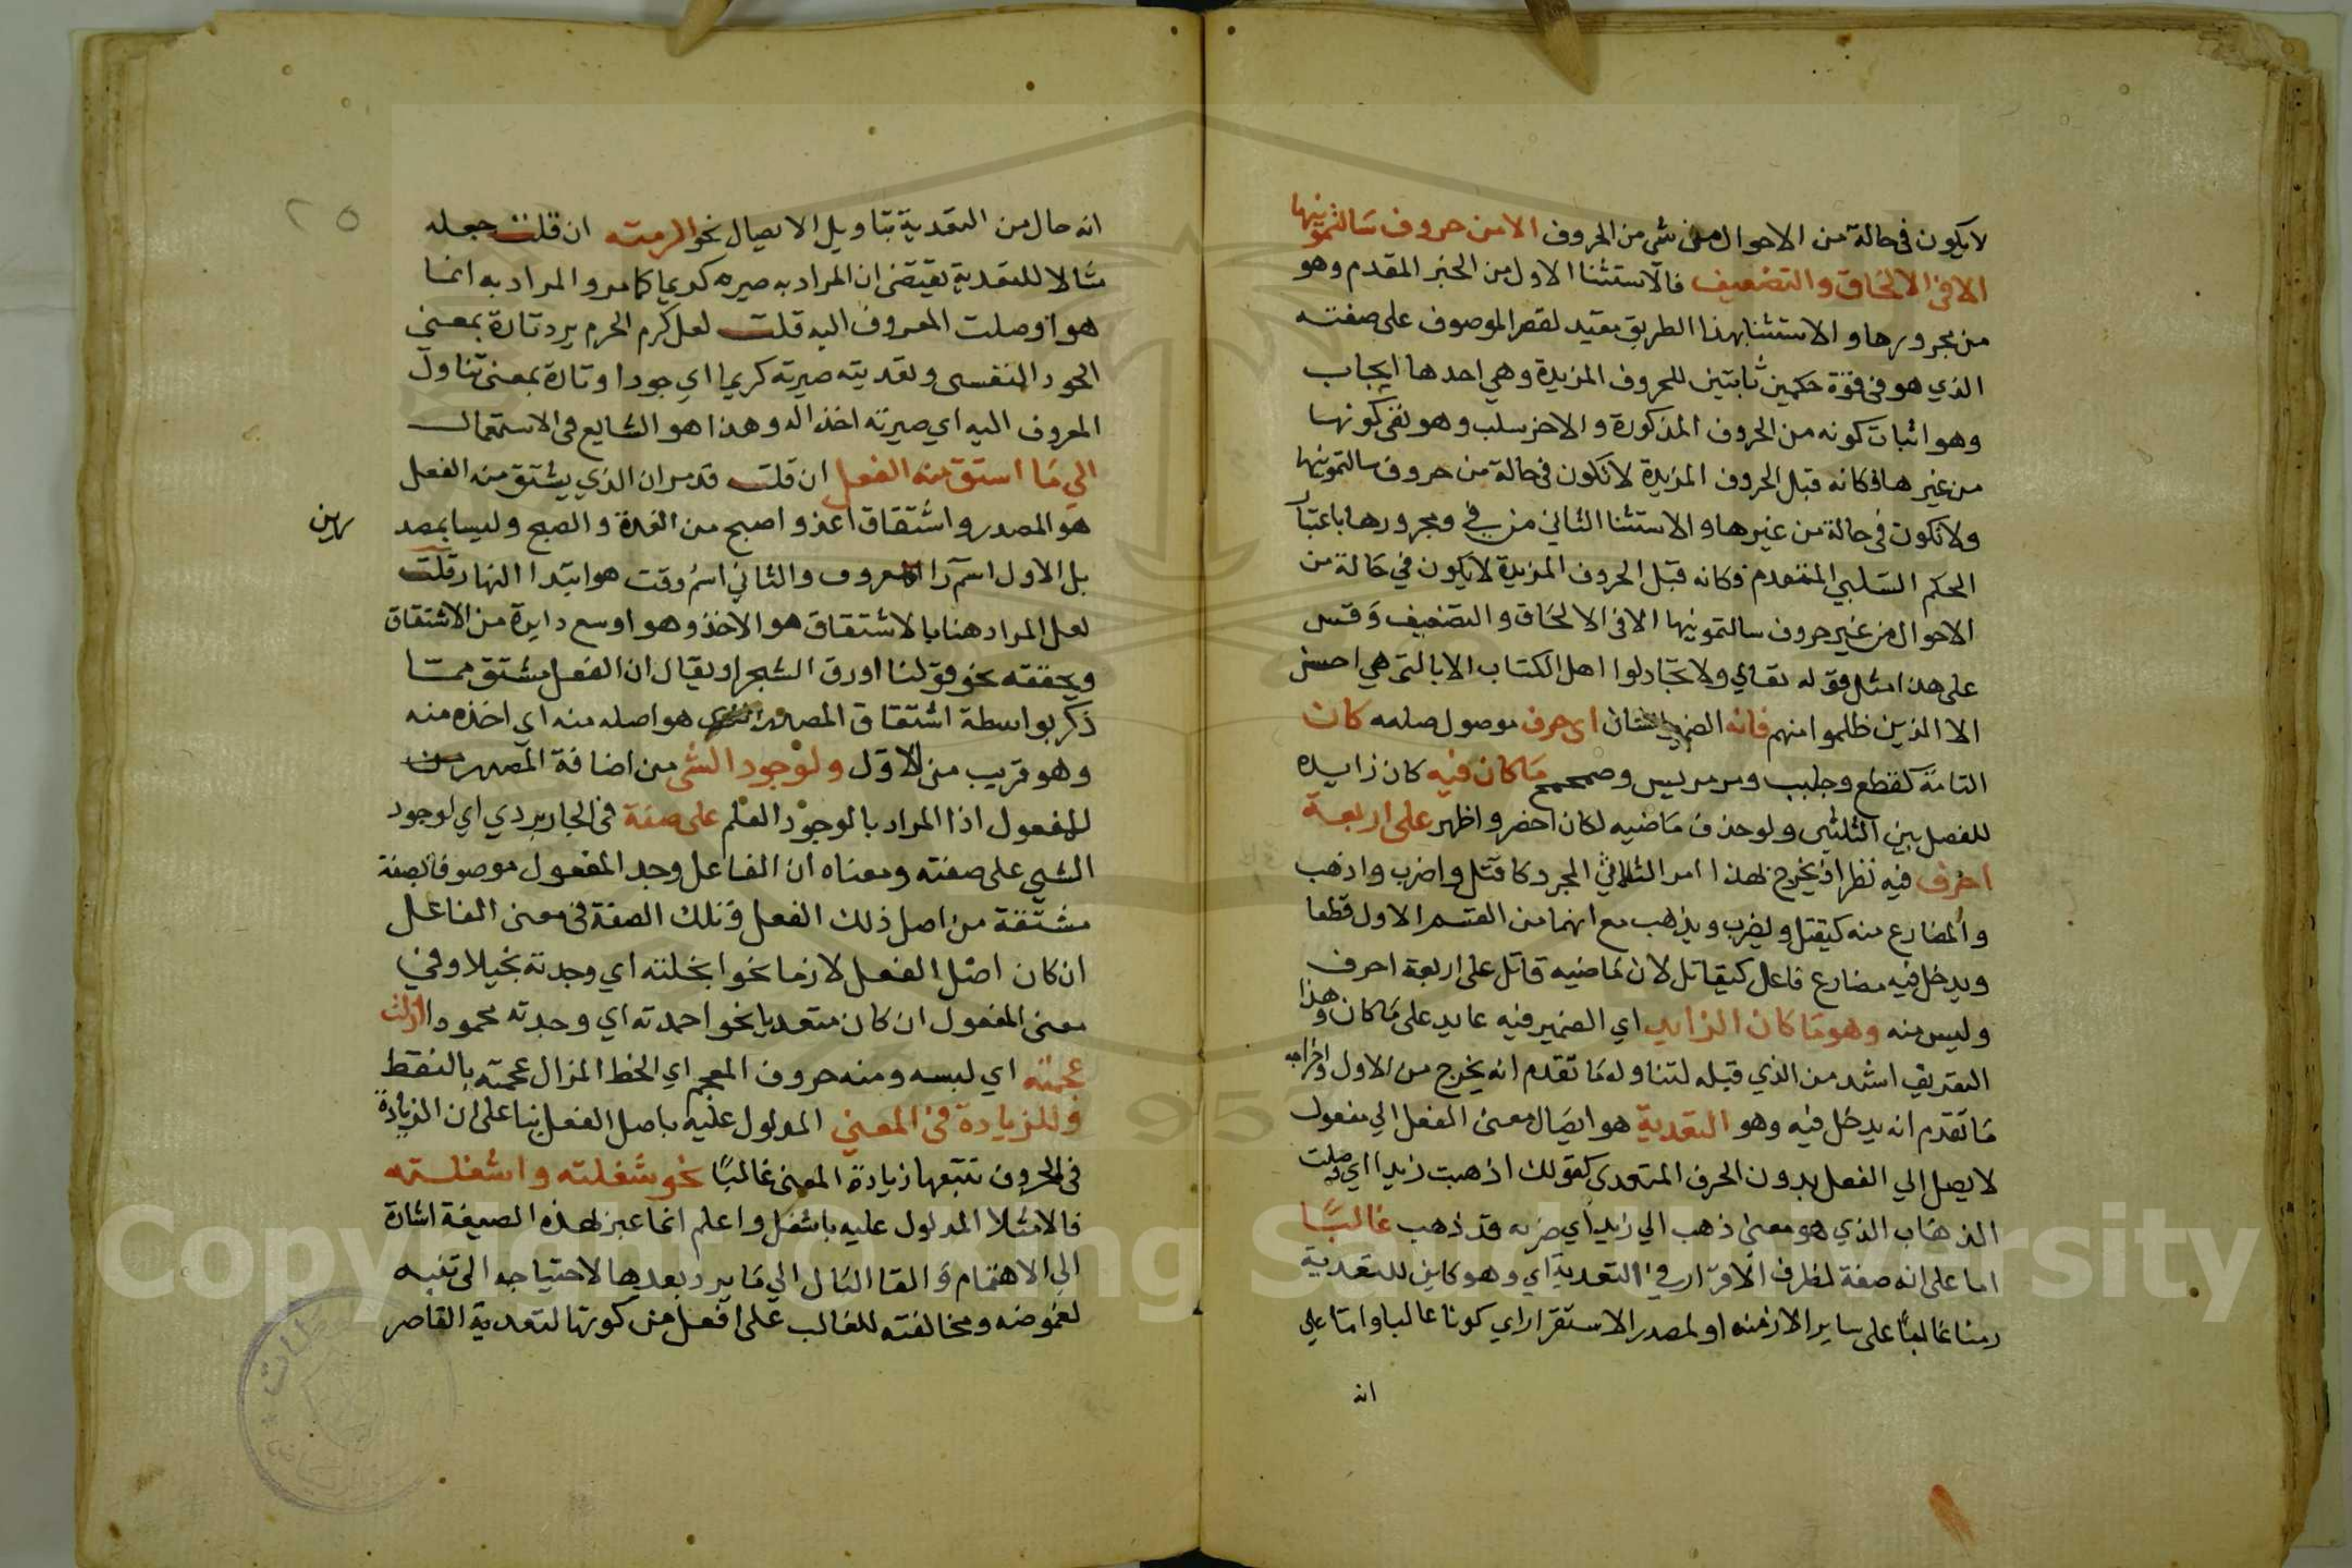 لا يكون في حالة من الاحوال من شي من الحروف الا من حروف سالتمونيها
الا في الالحاق والتضعيف فالاستثنا الاول من الخبر المقدم وهو
من مجرورها والاستثنا بهذا الطريق مفيد لقصر الموصوف على صفته
الذي هو في قوة حكمين ثابتين للحروف المزيدة وهي احدها ايجاب
وهو اثبات كونه من الحروف المذكورة والاخر سلب وهو نفي كونها
من غيرها فكانه قيل الحروف المزيدة لا تكون في حالة من حروف سالتمونيها
ولا تكون في حالة من غيرها والاستثنا الثاني من في ومجرورها باعتبار
الحكم السلبي المتقدم فكانه قيل الحروف المزيدة لا يكون في حالة من
الاحوال من غير حروف سالتمونيها الا في الالحاق والتضعيف وقس
على هذا مثل قوله تعالي ولا تجادلوا اهل الكتاب الا بالتي هي احسن
الا الذين ظلموا منهم فانه الضمير للشان اي حرف موصول صلته كان
التامة كقطع وجلبب ومرمريس وصمحمح ما كان فيه كان زايده
للفصل بين الثلثي ولو حذف ماضيه لكان اخصر واظهر على اربعة
احرف فيه نظر اذ يخرج لهذا امر الثلاثي المجرد كاقتل واضرب واذهب
والمضارع منه كيقتل ويضرب ويذهب مع انهما من القسم الاول قطعا
ويدخل فيه مضارع فاعل كيقاتل لان ماضيه قاتل على اربعة احرف
وليس منه وهو ما كان الزايد اي الضمير فيه عايد على ما كان وهذا
التعريف اشد من الذي قبله لتناوله ما تقدم انه يخرج من الاول واخراجه
ما تقدم انه يدخل فيه وهو التعدية هو ايصال معنى الفعل الي مفعول
لا يصل الي الفعل بدون الحرف المتعدي كقولك اذهبت زيدا اي وصلت
الذهاب الذي هو معنى ذهب الي زيد اي صيرته قد ذهب غالبًا
اما على انه صفة لظرف الاقرار في التعدية اي وهو كاين للتعدية
زمنا غالبًا على ساير الازمنه او لمصدر الاستقرار اي كونا غالبا واما على
انه
انه حال من التعدية بتاويل الايصال نحو اكرمته ان قلت جعله
مثالا للتعدية يقتضي ان المراد به صيره كريما كما مر والمراد به انما
هو اوصلت المعروف اليه قلت لعل كرم الحرم يرد تارة بمعنى
الجود النفسي وتعديته صيرته كريما اي جودا وتارة بمعنى تناول
المعروف اليه اي صيرته اخذ اله وهذا هو الشايع في الاستعمال
الي ما استق منه الفعل ان قلت قد مر ان الذي يشتق منه الفعل
هو المصدر واشتقاق اغد واصبح من الغدة والصبح وليسا بمصد
رين
بل الاول اسم المعروف والثاني اسم وقت هو ابتدا النهار قلت
لعل المراد هنا بالاشتقاق هو الاخذ وهو اوسع دايرة من الاشتقاق
ويحققه نحو قولنا اورق الشجر او يقال ان الفعل مشتق مما
ذكر بواسطة اشتقاق المصدر الذي هو اصله منه اي اخذه منه
وهو قريب من الاول ولوجود الشي من اضافة المصدر
للمفعول اذا المراد بالوجود العلم على صفة في الجاربردي اي لوجود
الشي على صفته ومعناه ان الفاعل وجد المفعول موصوفا بصفة
مشتقة من اصل ذلك الفعل وتلك الصفة في معنى الفاعل
ان كان اصل الفعل لازما نحو ابخلته اي وجدته بخيلا وفي
معنى المفعول ان كان متعديا نحو احمدته اي وجدته محمودا ازلت
عجمته اي لبسه ومنه حروف المعجم اي الخط المزال عجمته بالنقط
وللزيادة في المعني المدلول عليه باصل الفعل بنا على ان الزيادة
في الحروف تتبعها زيادة المعنى غالبًا نحو شغلته واشغلته
فالامثلا المدلول عليه باشغل واعلم انما عبر بهذه الصيغة اشارة
الي الاهتمام والقا البال الي ما يرد بعدها لاحتياجه الى تنبه
لغموضه ومخالفته للغالب على افعل من كونها لتعدية القاصر
Copyright © King Saud University